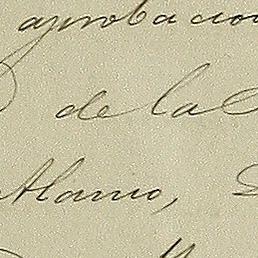 aprobacion
de la
Alamo,